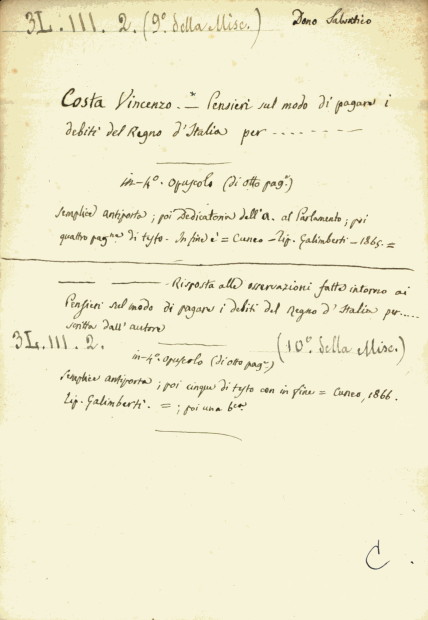 3L. III. 2. (9º della Misc.) Dono Salvatico
Costa Vincenzo. = Pensieri sul modo di pagare i
debiti del Regno d'Italia per - - - - - - - -
in-4º. opuscolo (di otto pag.)
semplice antiporta; poi Dedicatoria dell'a. al Parlamento; poi
quattro pagne di testo. In fine è = Cuneo - Tip. Galimberti - 1865. =
——— Risposta alle osservazioni fatte intorno ai
Pensieri sul modo di pagare i debiti del Regno d'Italia per.....
scritta dall'autore
3L. III. 2. (10º. della Misc.)
in-4º. opuscolo (di otto pag.)
semplice antiporta; poi cinque di testo con in fine = Cuneo, 1866.
Tip. Galimberti. = ; poi una
C.